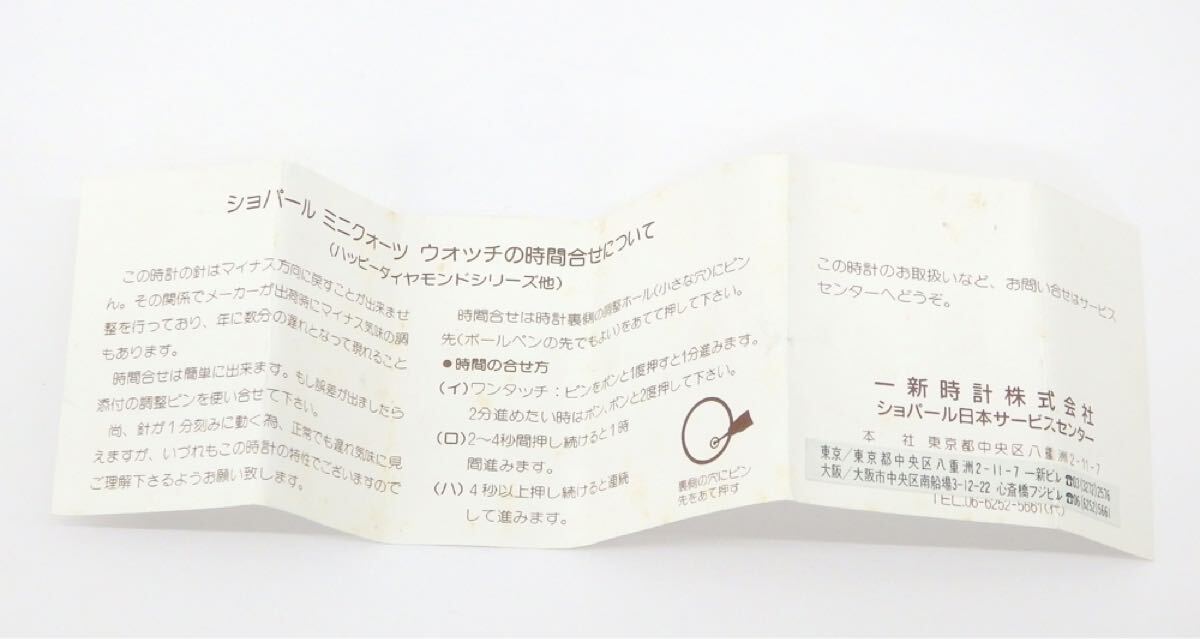 ショパール ミニクォーツ ウオッチの時間合せについて
(ハッピーダイヤモンドシリーズ他)
この時計の針はマイナス方向に戻すことが出来ませ
ん。その関係でメーカーが出荷時にマイナス気味の調
整を行っており、年に数分の遅れとなって現れること
もあります。
時間合せは簡単に出来ます。もし誤差が出ましたら
添付の調整ピンを使い合せて下さい。
尚、針が1分刻みに動く為、正常でも遅れ気味に見
えますが、いづれもこの時計の特性でございますので
ご理解下さるようお願い致します。
時間合せは時計裏側の調整ホール(小さな穴)にピン
先(ボールペンの先でもよい)をあてて押して下さい。
●時間の合せ方
(イ)ワンタッチ:ピンをポンと1度押すと1分進みます。
2分進めたい時はポン、ポンと2度押して下さい。
(ロ)2〜4秒間押し続けると1時
間進みます。
(ハ)4秒以上押し続けると連続
して進みます。
裏側の穴にピン
先をあて押す
この時計のお取扱いなど、お問い合せはサービス
センターへどうぞ。
一新時計株式会社
ショパール日本サービスセンター
本 社 東京都中央区八重洲2-11-7
東京/東京都中央区八重洲2-11-7 一新ビル ☎03(3272)2576
大阪/大阪市中央区南船場3-12-22 心斎橋フジビル ☎06(6252)5661
TEL.06-6252-5661(代)